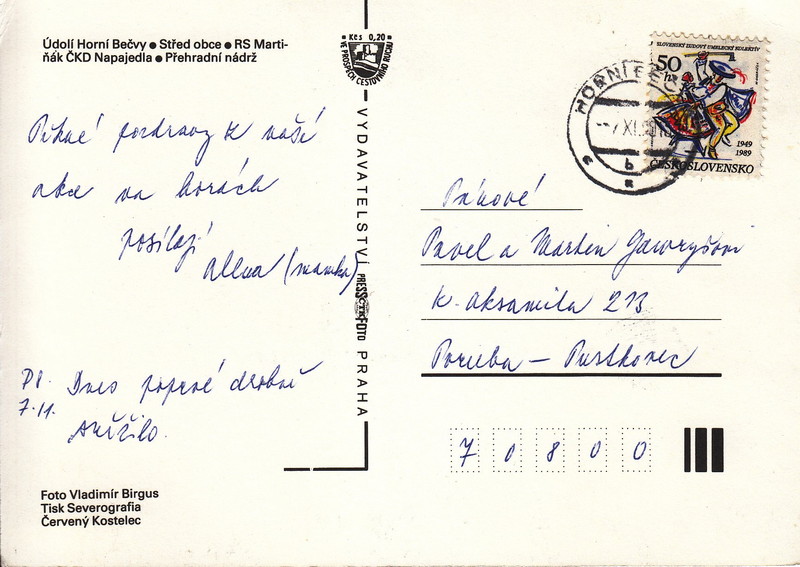 Údolí Horní Bečvy ● Střed obce ● RS Marti-
ňák ČKD Napajedla ● Přehradní nádrž
Pěkné pozdravy z naší
akce na horách
posílají
(mamka)
PS. Dnes poprvé drobně
7.11.
sněžilo.
Foto Vladimír Birgus
Tisk Severografia
Červený Kostelec
Kčs 0,20
VE PROSPĚCH CESTOVNÍHO RUCHU
VYDAVATELSTVÍ PRESSFOTO PRAHA
ČTK
HORNÍ BEČ
-7.XI.
b
SLOVENSKÝ ĽUDOVÝ UMELECKÝ KOLEKTÍV
50
h
1949
1989
ČESKOSLOVENSKO
Pánové
Pavel a Martin
K. Aksamita 213
Poruba – Pustkovec
7 0 8 0 0